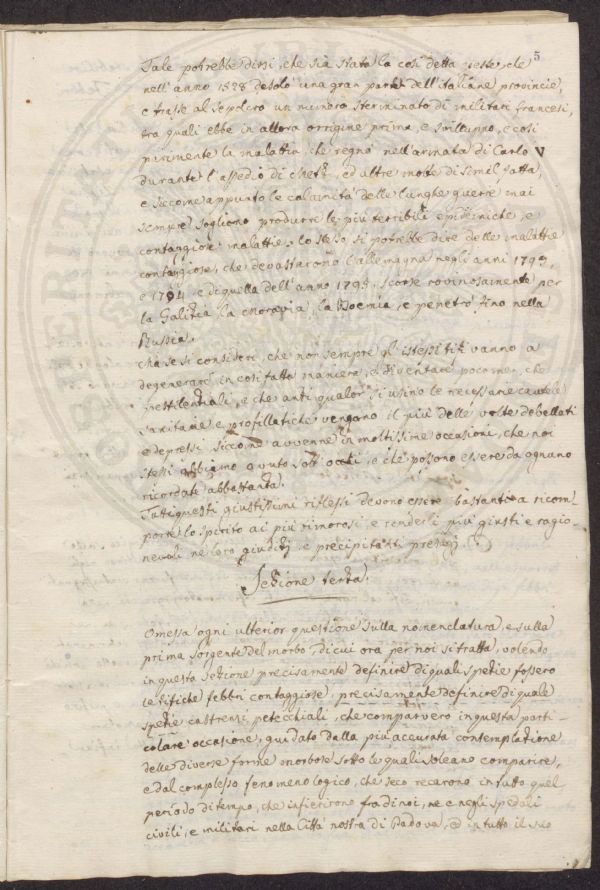 5
Tale potrebbe dirsi, che sia stata la così detta peste, che
nell'anno 1528 desolò una gran parte dell'Italiane provincie,
e trasse al sepolcro un numero sterminato di militari francesi,
tra quali ebbe in allora origine prima, e sviluppo, e così
parimente la malattia, che regnò nell'armata di Carlo V
durante l'assedio di Metz, ed altre molte di simil fatta,
e siccome appunto le calamità delle lunghe guerre mai
sempre sogliono produrre le più terribili epidemiche, e
contaggiose malattie, lo stesso si potrebbe dire delle malattie
contaggiose, che devastarono l'allemagna negli anni 1793,
e 1794, e di quella dell'anno 1795, scorse rovinosamente per
la Galitzia la Moravia, la Boemia, e penetrò fino nella
Russia.
Ma se si consideri, che non sempre gl'istessi tifi vanno a
degenerare in così fatta maniera, e diventare pocomen, che
pestilenziali, e che anzi qualor si usino le necessarie cautele
sanitarie e profillatiche vengono il più delle volte debellati
e depressi siccome avvenne in moltissime occasioni, che noi
stessi abbiamo avuto sott'occhi, e che possono essere da ognuno
ricordate abbastanza.
Tutti questi giustissimi riflessi devono essere bastanti a ricom-
porre lo spirito ai più timorosi, e renderli più giusti e ragio-
nevoli ne loro giudizj e precipitanti
Sezione terza.
Omessa ogni ulterior questione sulla nomenclatura, e sulla
prima sorgente del morbo di cui ora per noi si tratta, volendo
in questa sezione precisamente definire di quali spezie fossero
le tifiche febbri contaggiose, precisamente definire di quale
spezie castrensi, petecchiali, che comparvero in questa parti-
colare occasione, guidato dalla più accurata contemplazione
delle diverse forme morbose sotto le quali soleano comparire,
e dal complesso fenomenologico, che seco recarono in tutto quel
periodo di tempo, che infierirono fra di noi, ne e negli spedali
civili, e militari nella Città nostra di Padova, in tutto il suo